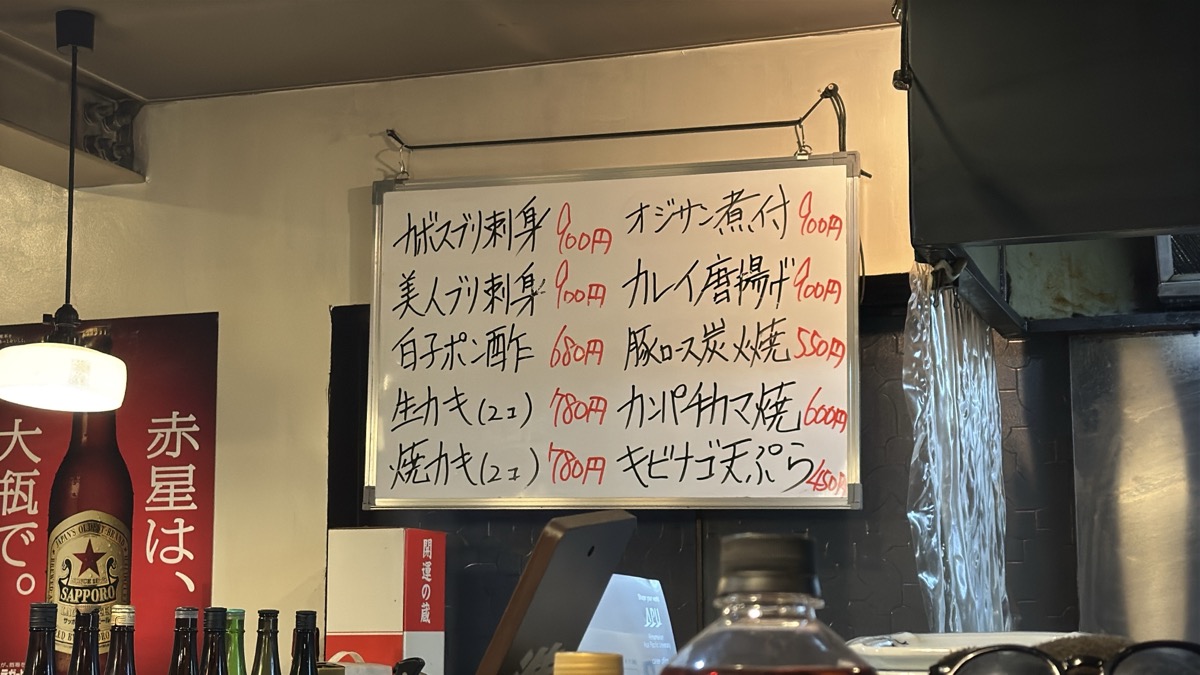 カボスブリ刺身 900円
美人ブリ刺身 900円
白子ポン酢 680円
生カキ(2コ) 780円
焼カキ(2コ) 780円
オジサン煮付 900円
カレイ唐揚げ 900円
豚ロース炭火焼 550円
カンパチカマ焼 600円
キビナゴ天ぷら 450円
赤星は、
大瓶で。
JAPAN'S OLDEST BRAND
SAPPORO
開運の蔵
APU